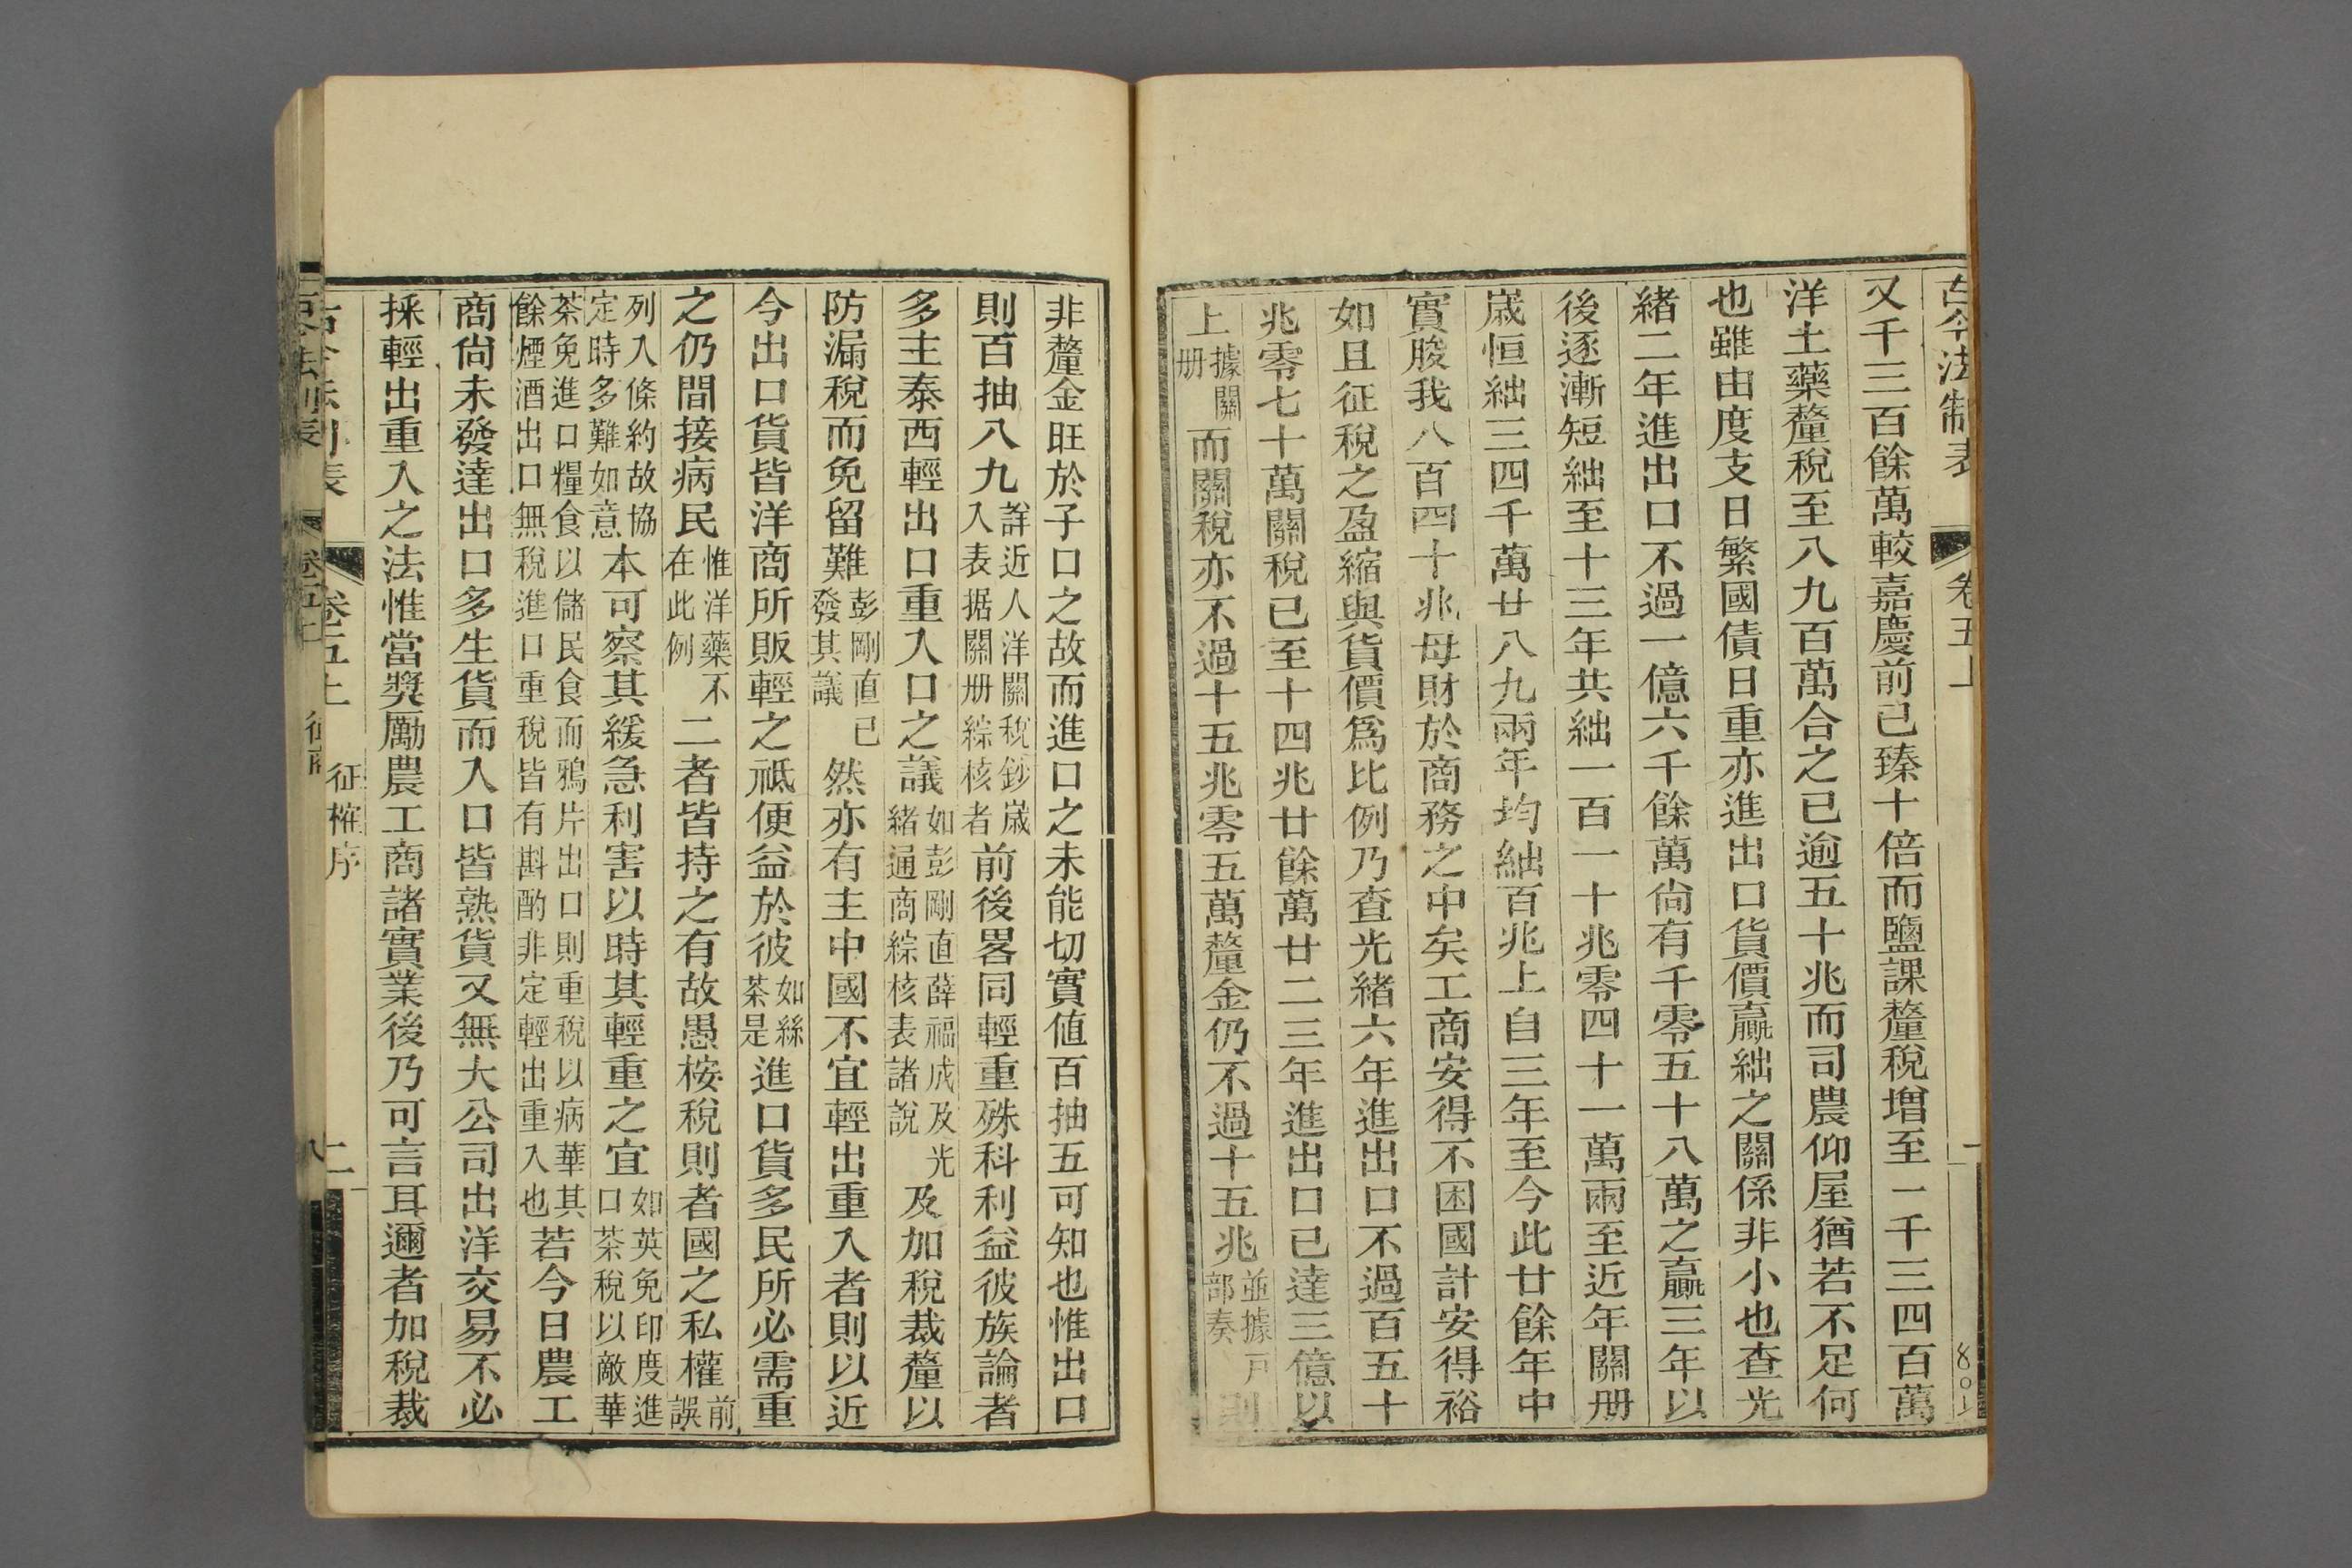 古今法制表
卷五上
一
又千三百餘萬較嘉慶前已臻十倍而鹽課釐稅增至一千三四百萬
洋土藥釐稅至八九百萬合之已逾五十兆而司農仰屋猶若不足何
也雖由度支日繁國債日重亦進出口貨價贏絀之關係非小也查光
緒二年進出口不過一億六千餘萬尙有千零五十八萬之贏三年以
後逐漸短絀至十三年共絀一百一十兆零四十一萬兩至近年關册
歲恒絀三四千萬廿八九兩年均絀百兆上自三年至今此廿餘年中
實朘我八百四十兆母財於商務之中矣工商安得不困國計安得裕
如且征稅之盈縮與貨價爲比例乃查光緒六年進出口不過百五十
兆零七十萬關稅已至十四兆廿餘萬廿二三年進出口已達三億以
上據關册而關稅亦不過十五兆零五萬釐金仍不過十五兆並據戶部奏則
非釐金旺於子口之故而進口之未能切實値百抽五可知也惟出口
則百抽八九詳近人洋關稅鈔歲入表据關册綜核者前後畧同輕重殊科利益彼族論者
多主泰西輕出口重入口之議如彭剛直薛福成及光緒通商綜核表諸說及加稅裁釐以
防漏稅而免留難彭剛直已發其議然亦有主中國不宜輕出重入者則以近
今出口貨皆洋商所販輕之祗便益於彼如絲茶是進口貨多民所必需重
之仍間接病民惟洋藥不在此例二者皆持之有故愚桉稅則者國之私權前誤
列入條約故協定時多難如意本可察其緩急利害以時其輕重之宜如英免印度進口茶稅以敵華
茶免進口糧食以儲民食而鴉片出口則重稅以病華其餘煙酒出口無稅進口重稅皆有斟酌非定輕出重入也若今日農工
商尙未發達出口多生貨而入口皆熟貨又無大公司出洋交易不必
採輕出重入之法惟當獎厲農工商諸實業後乃可言耳邇者加稅裁
卷五上
征榷序
二